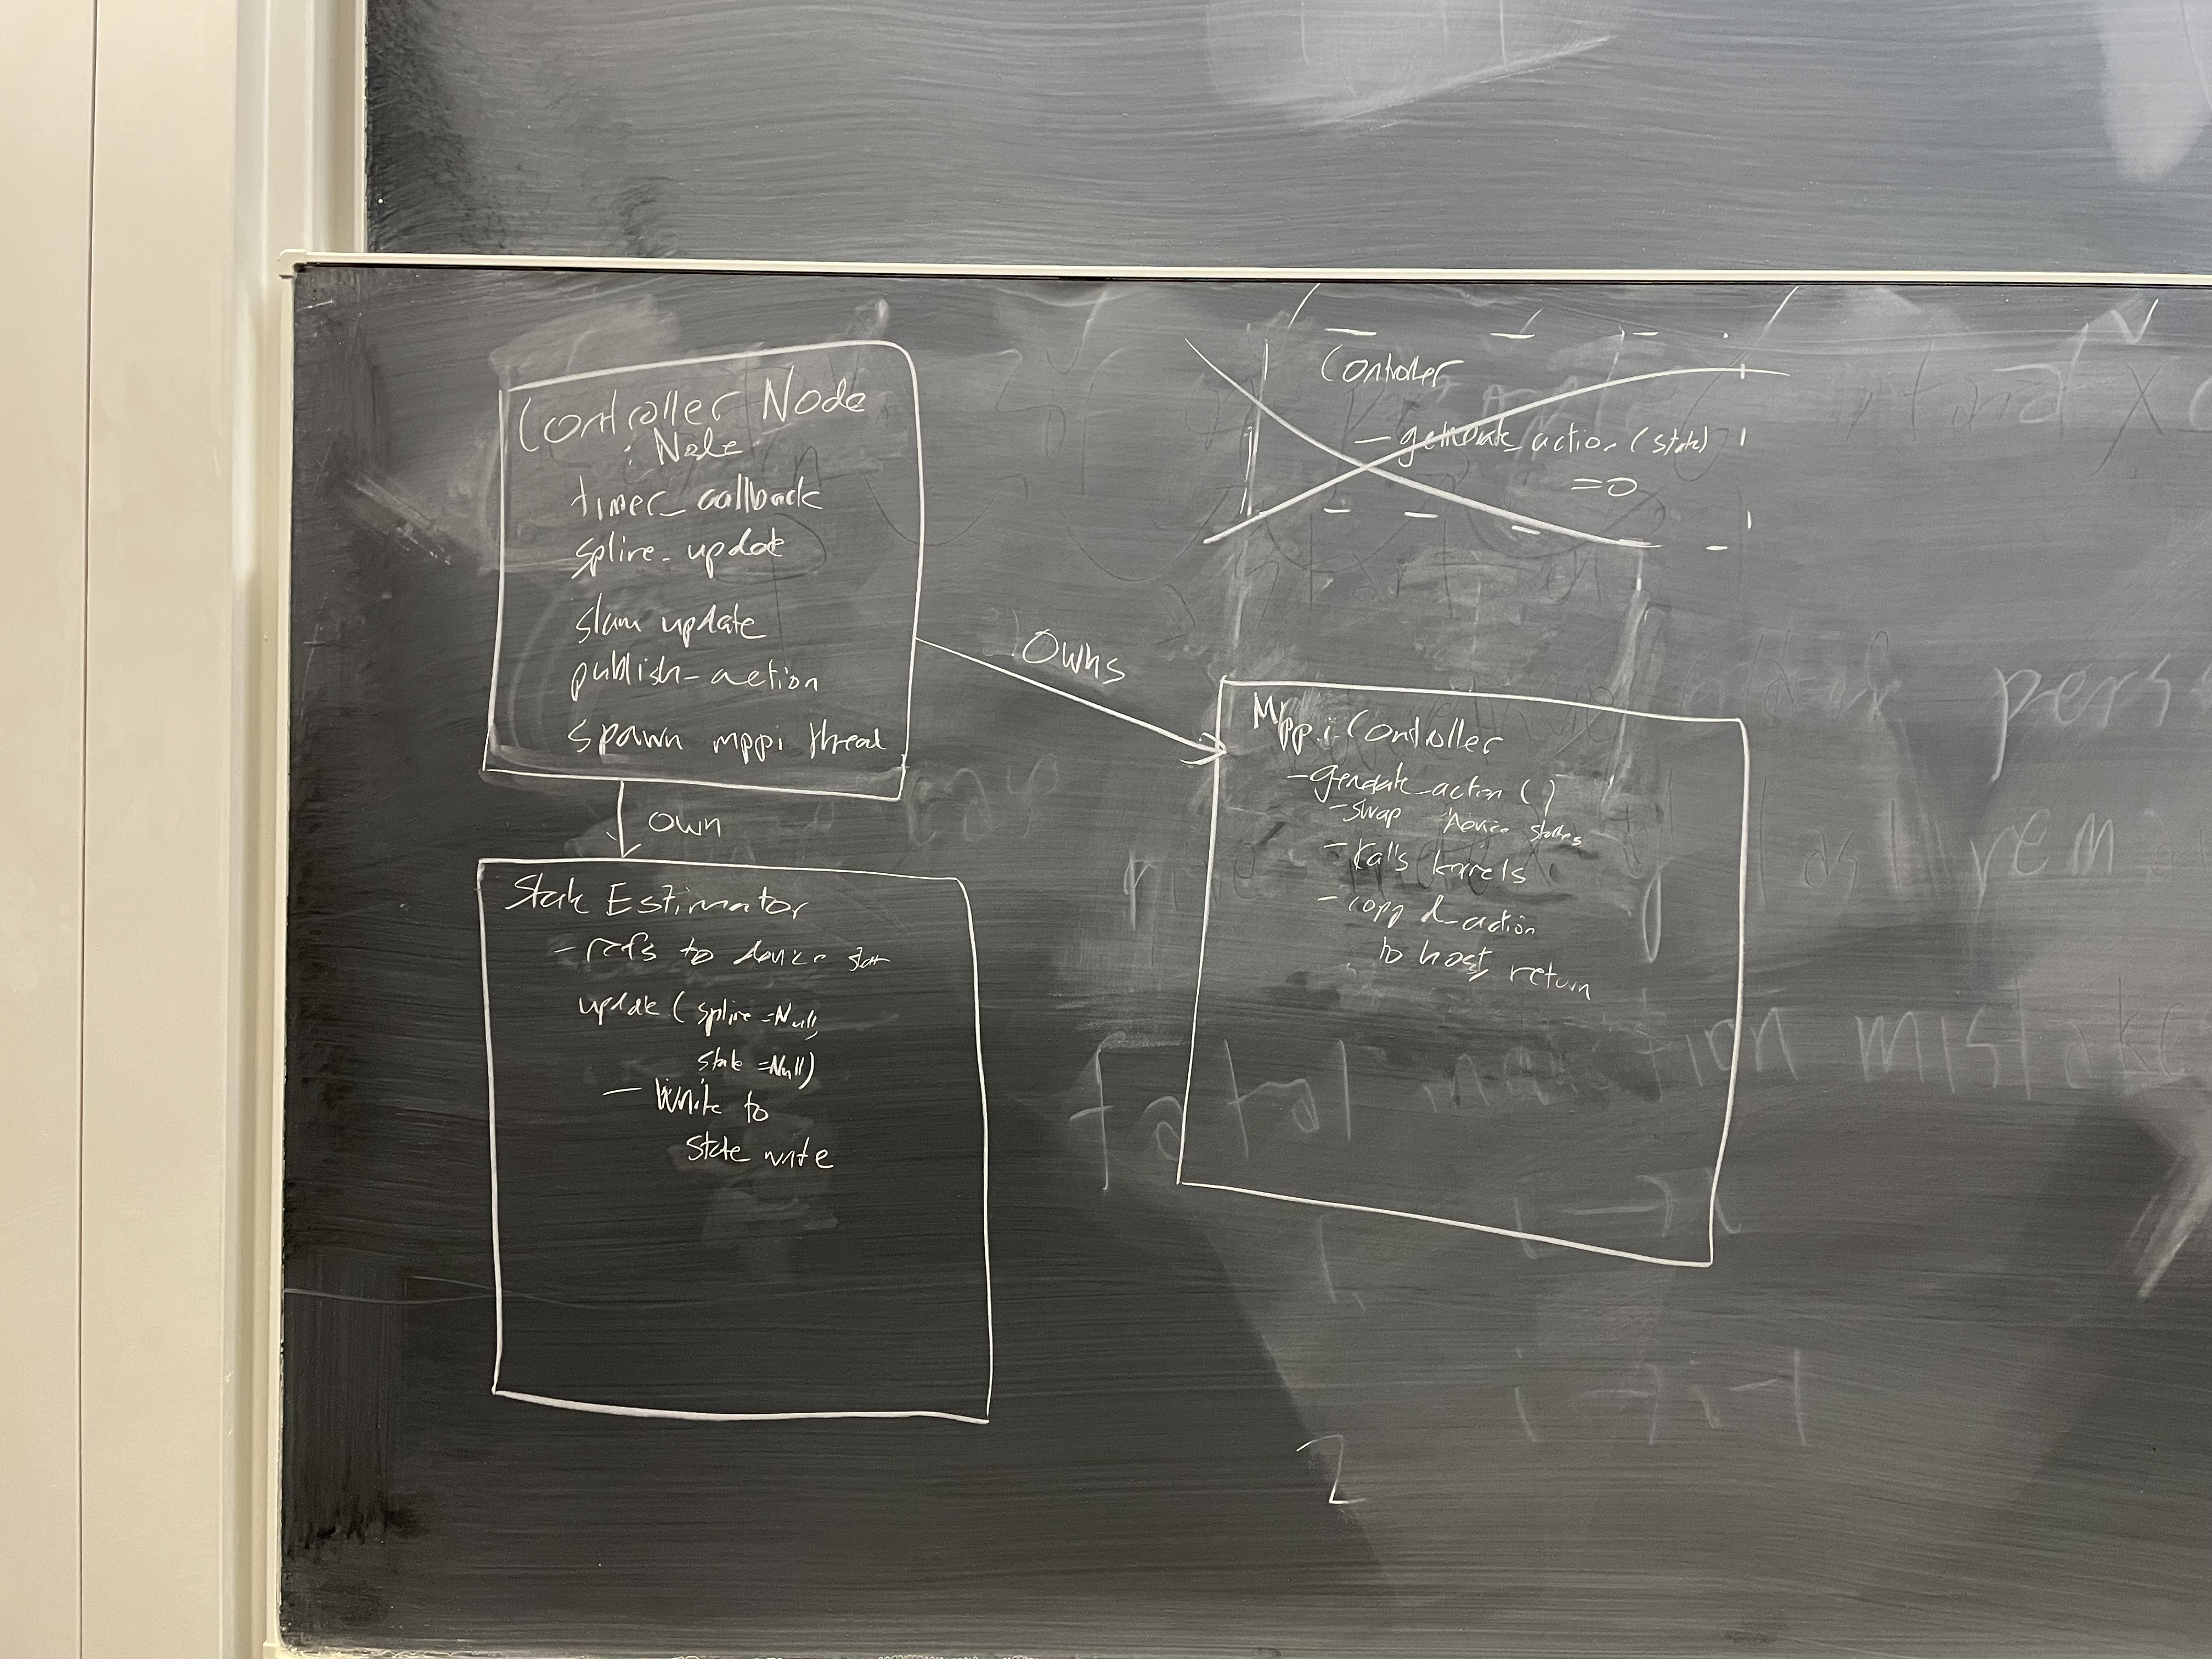 Controller Node
: Node
timer_callback
spline_update
slam update
publish_action
spawn mppi thread
own
State Estimator
- refs to device state
update ( spline = Null,
state = Null)
- Write to
state write
Owns
Controller
- generate_action (state)
=0
Mppi Controller
- generate_action ( )
- swap device states
- calls kernels
- copy d_action
to host, return
Fatal mistake
2